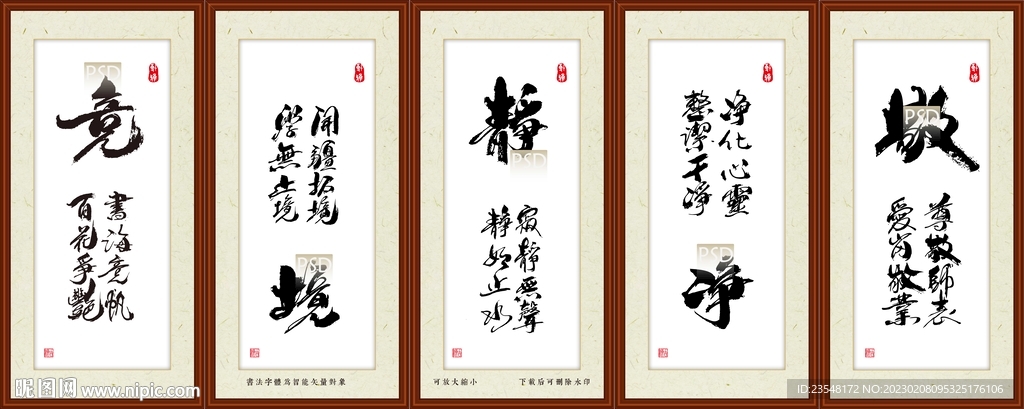 PSD
竞
書海竞帆
百花爭艷
開疆拓境
學無止境
PSD
境
靜
PSD
寂靜無聲
靜如止水
净化心靈
整潔干净
PSD
净
PSD
敬
尊敬師表
愛岗敬業
書法字體爲智能矢量對象
可放大縮小
下載后可刪除水印
昵图网 www.nipic.com
ID:23548172 NO:20230208095325176106